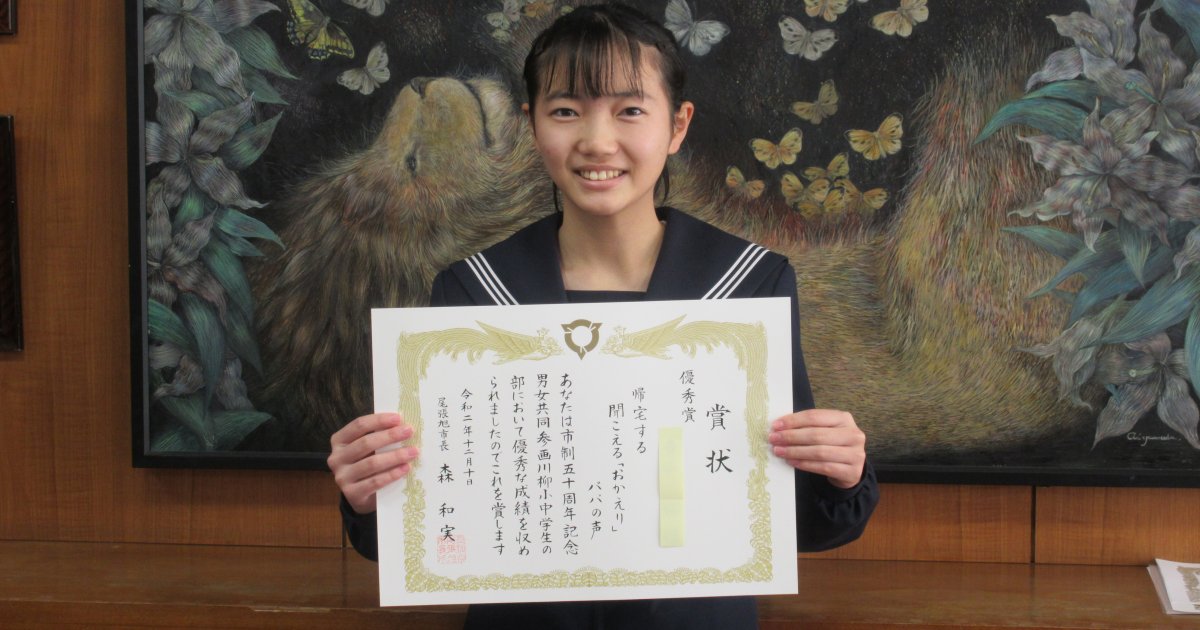 賞状
優秀賞
帰宅する
聞こえる「おかえり」
パパの声
あなたは市制五十周年記念
男女共同参画川柳小中学生の
部において優秀な成績を収め
られましたのでこれを賞します
令和二年十二月十日
尾張旭市長 森 和実